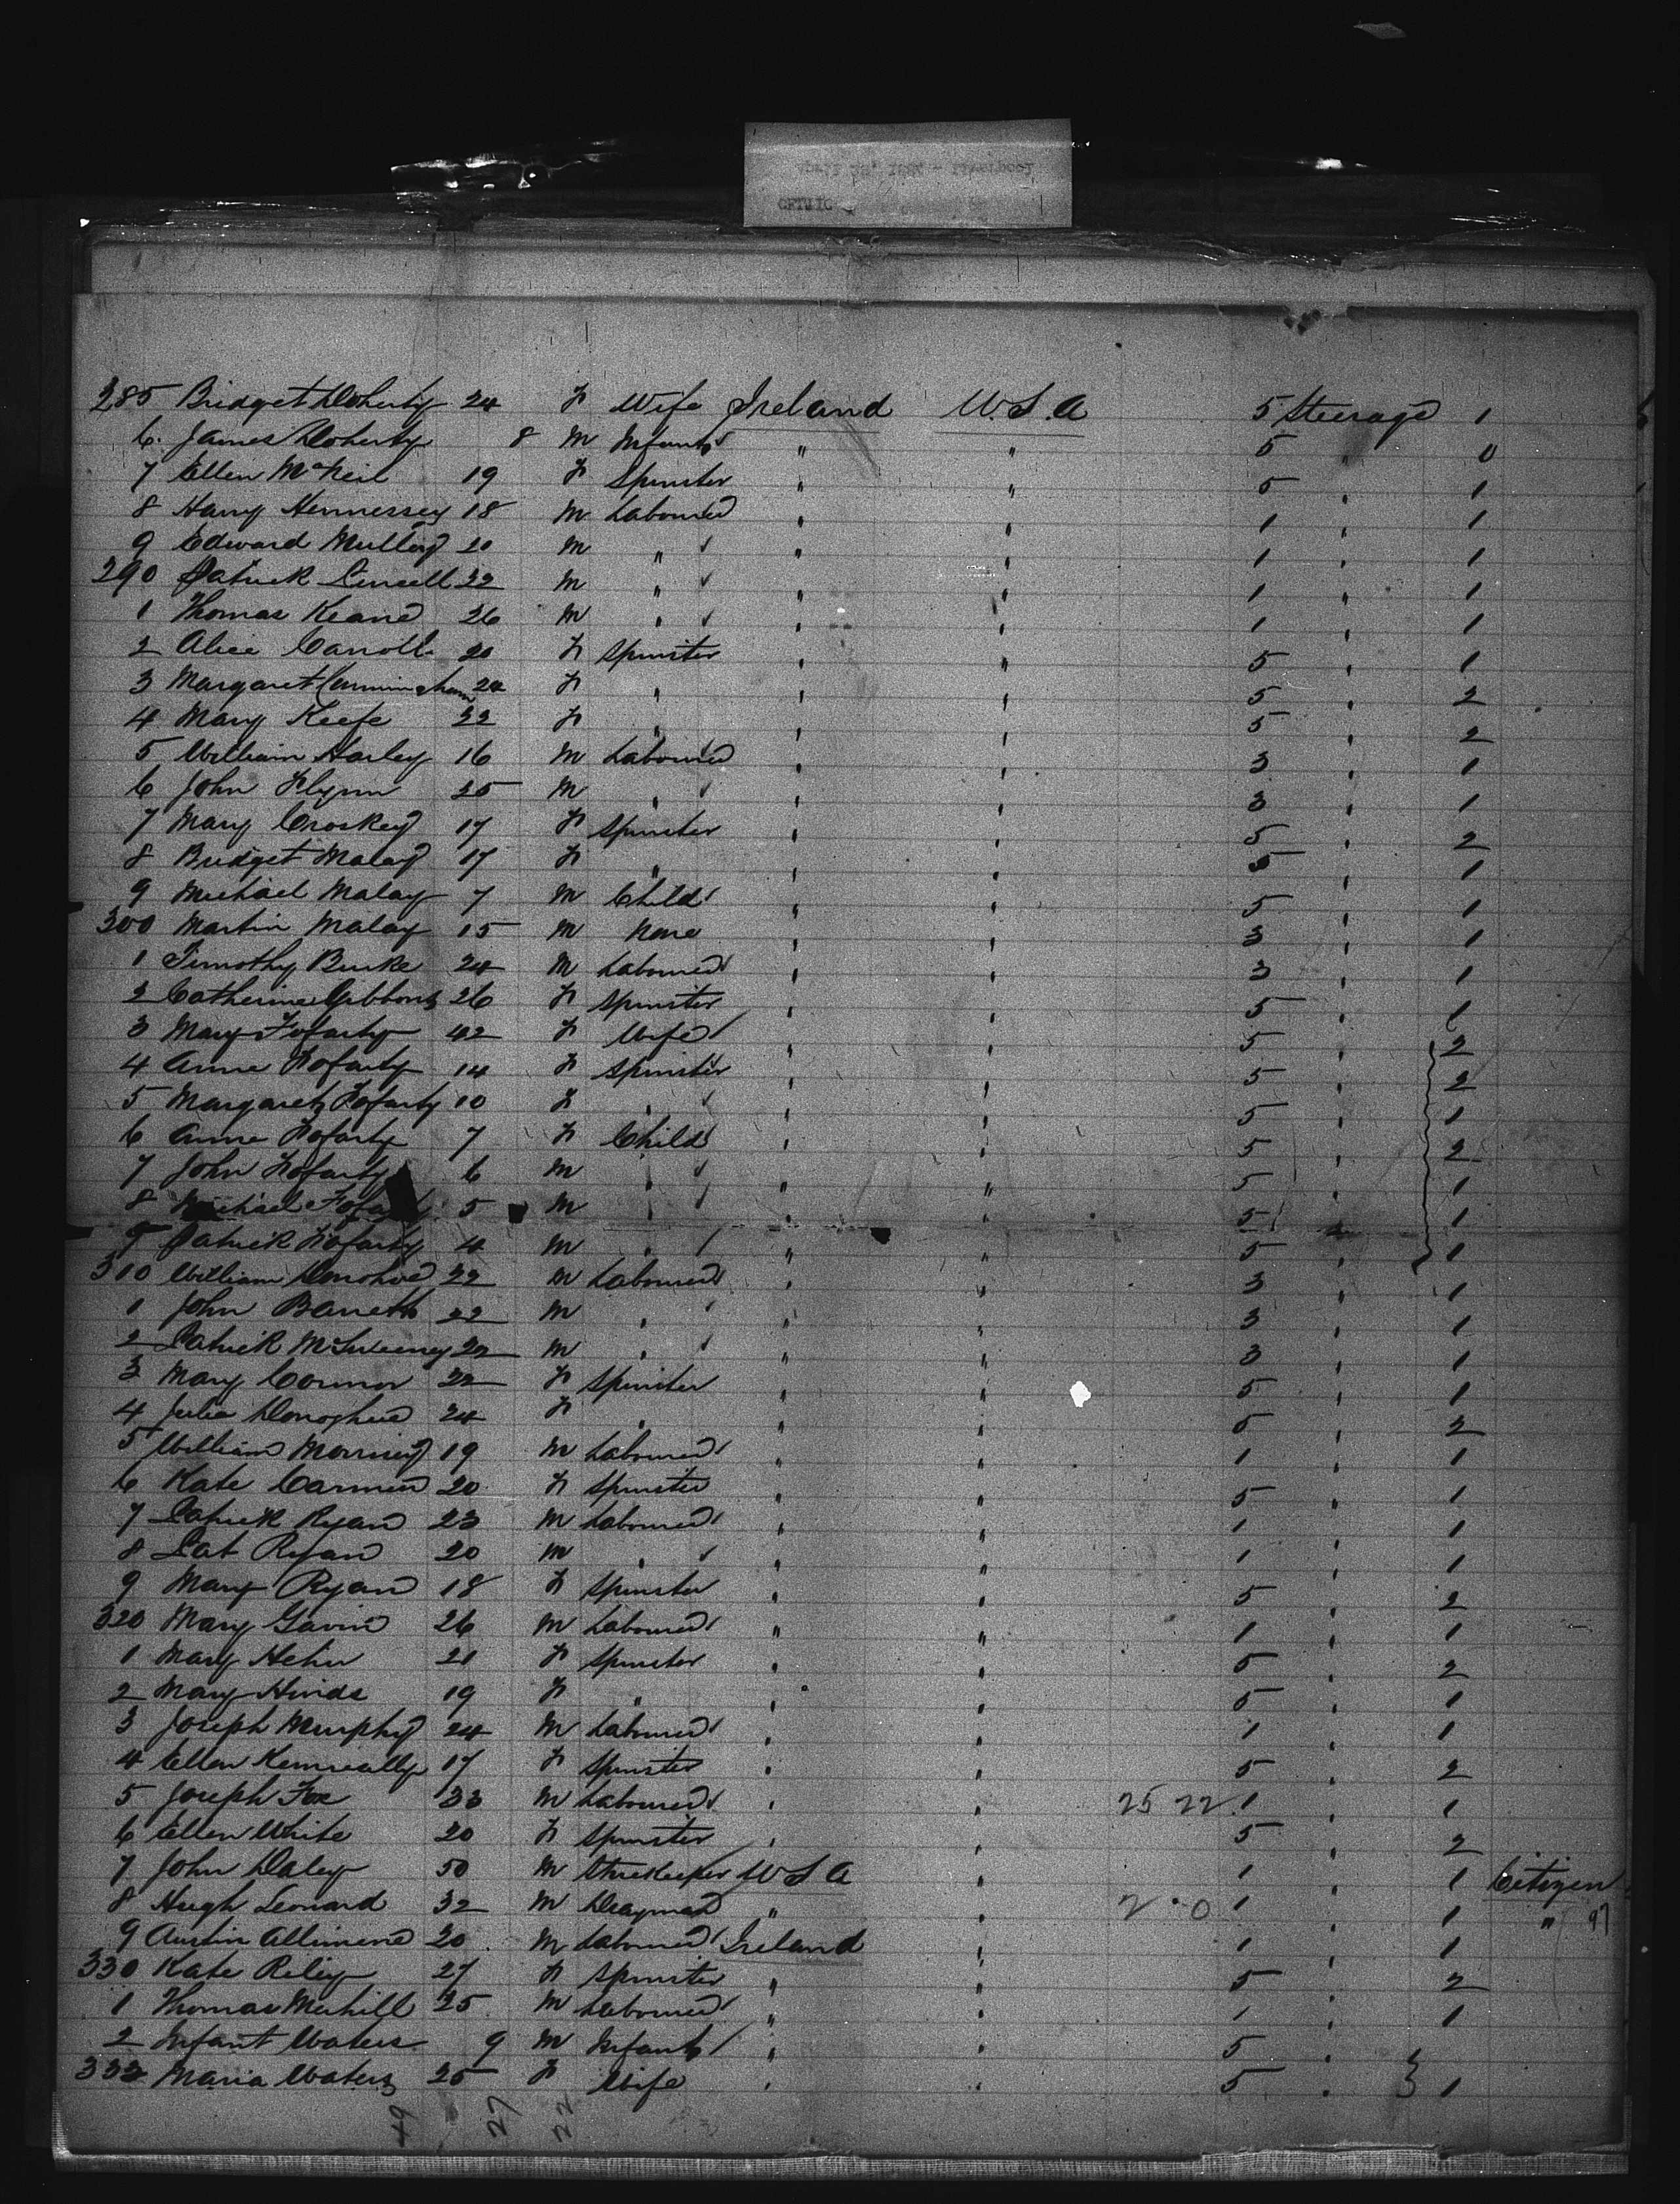 CELTIC
285 Bridget Doherty 24 F Wife Ireland U.S.A 5 Steerage 1
6 James Doherty 8 M Infant " " 5 " 0
7 Ellen McNeil 19 F Spinster " " 5 " 1
8 Harry Hennessey 18 M Labourer " " 1 " 1
9 Edward 20 M " " " 1 " 1
290 Patrick 22 M " " " 1 " 1
1 Thomas Keane 26 M " " " 1 " 1
2 Alice Carroll 20 F Spinster " " 5 " 1
3 Margaret Cunningham 24 F " " " 5 " 2
4 Mary Keefe 22 F " " " 5 " 2
5 William Harley 16 M Labourer " " 3 " 1
6 John Flynn 25 M " " " 3 " 1
7 Mary Croskey 17 F Spinster " " 5 " 2
8 Bridget Malay 17 F " " " 5 " 1
9 Michael Malay 7 M Child " " 5 " 1
300 Martin Malay 15 M None " " 3 " 1
1 Timothy Burke 24 M Labourer " " 3 " 1
2 Catherine Gibbons 26 F Spinster " " 5 " 1
3 Mary Fofarty 42 F Wife " " 5 " 2
4 Anne Fofarty 14 F Spinster " " 5 " 2
5 Margaret Fofarty 10 F " " " 5 " 1
6 Anne Fofarty 7 F Child " " 5 " 2
7 John Fofarty 6 M " " " 5 " 1
8 Michael 5 M " " " 5 " 1
9 Patrick Fofarty 4 M " " " 5 " 1
310 William Donohoe 22 M Labourer " " 3 " 1
1 John Barrett 22 M " " " 3 " 1
2 Patrick McSweeney 22 M " " " 3 " 1
3 Mary Connor 22 F Spinster " " 5 " 1
4 Julia Donoghue 24 F " " " 5 " 2
5 William 19 M Labourer " " 1 " 1
6 Kate 20 F Spinster " " 5 " 1
7 Patrick Ryan 23 M Labourer " " 1 " 1
8 Pat Ryan 20 M " " " 1 " 1
9 Mary Ryan 18 F Spinster " " 5 " 2
320 Mary Gavin 26 M Labourer " " 1 " 1
1 Mary 21 F Spinster " " 5 " 2
2 Mary Hinds 19 F " " " 5 " 1
3 Joseph Murphy 24 M Labourer " " 1 " 1
4 Ellen Kenneally 17 F Spinster " " 5 " 2
5 Joseph Fox 33 M Labourer " " 25 22 1 " 1
6 Ellen White 20 F Spinster " " 5 " 2
7 John Daley 50 M Storekeeper U S A " 1 " 1 Citizen
8 Hugh Leonard 32 M Drayman " " 2 0 1 " 1 " 97
9 Austin 20 M Labourer Ireland " 1 " 1
330 Kate Riley 27 F Spinster " " 5 " 2
1 Thomas 25 M Labourer " " 1 " 1
2 Infant Waters 9 M Infant " " 5 "
333 Maria Waters 25 F Wife " " 5 " 1
49 27 22